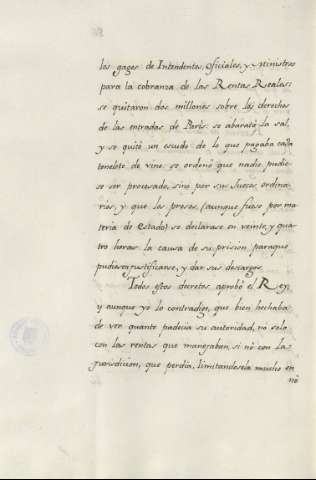 los gages de Intendentes, oficiales, y Ministros
para la cobranza de las Rentas Reales:
se quitaron dos millones sobre los derechos
de las entradas de Paris: se abarató la sal,
y se quitó un escudo de lo que pagaba cada
tonelete de vino: se ordenó que nadie pudie-
se ser processado, sino por sus Jueces ordina-
rios, y que los presos, (aunque fuese por ma-
teria de estado) se declarase en veinte, y qua-
tro horas la causa de su prision, paraque
pudiesen justificarse, y dar sus descargos.
Todos estos decretos aprobó el Rey,
y aunque yo lo contradige, que bien hechaba
de ver quanto padecia su autoridad, nó solo
con las rentas que manejaban, si nó con la
jurisdicion, que perdia, limitandosela mucho en
nó